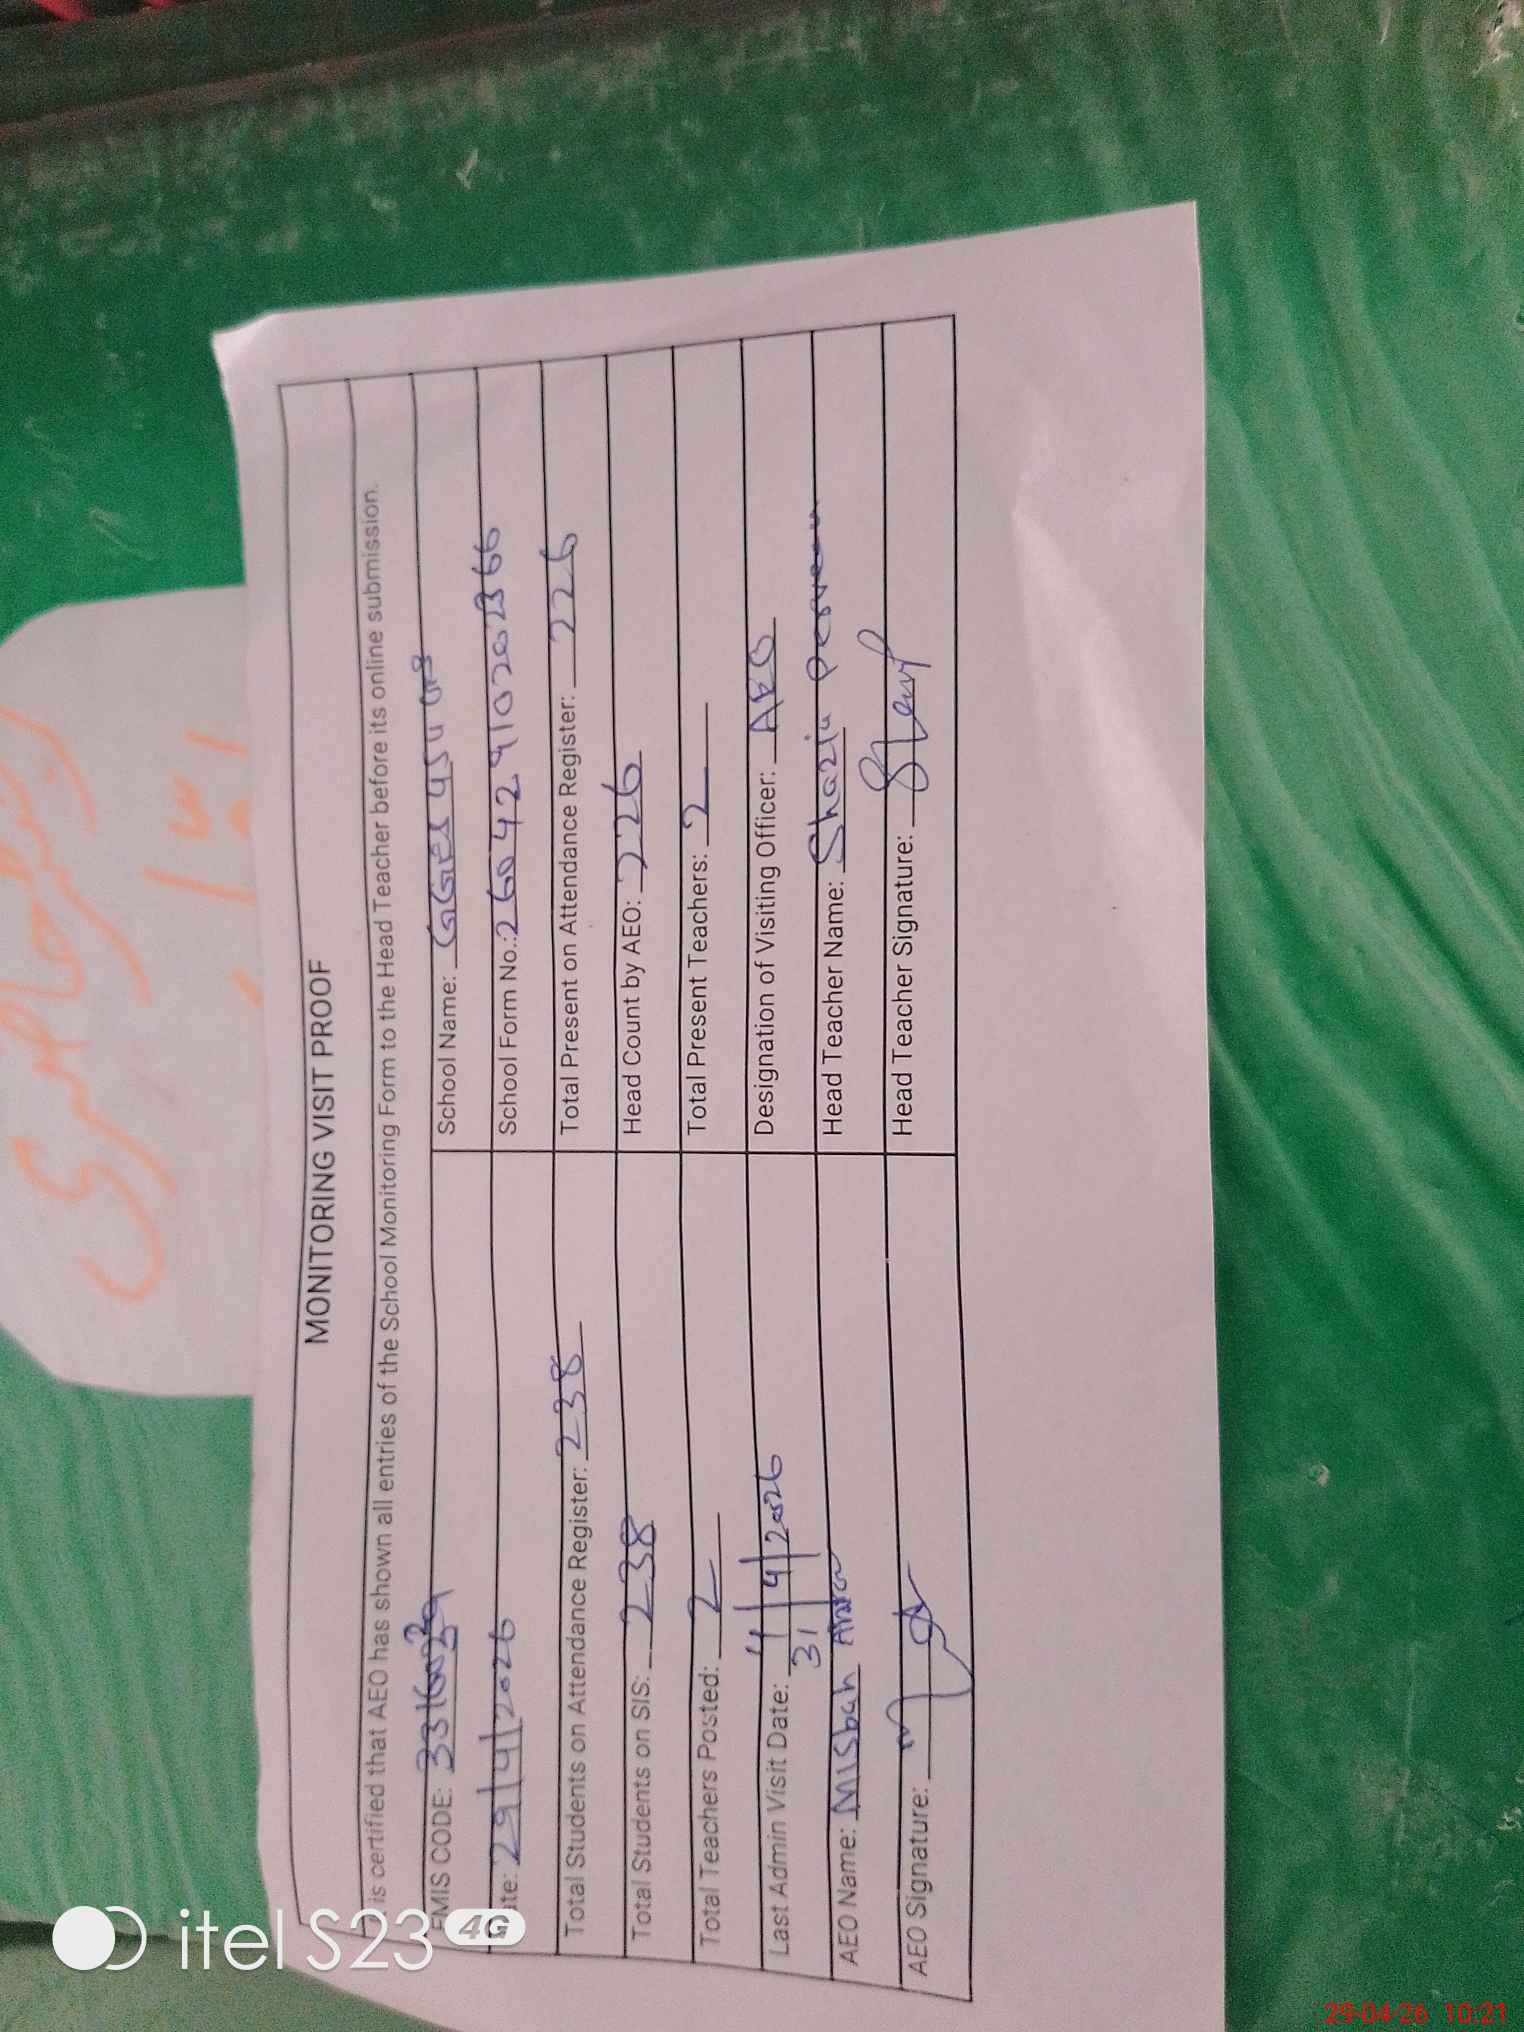 MONITORING VISIT PROOF
is certified that AEO has shown all entries of the School Monitoring Form to the Head Teacher before its online submission.
EMIS CODE:
School Name: GGES 45
Date: 29/4/2026
School Form No.: 26042910202366
Total Students on Attendance Register: 238
Total Present on Attendance Register: 226
Total Students on SIS: 238
Head Count by AEO: 226
Total Teachers Posted: 2
Total Present Teachers: 2
Last Admin Visit Date: 31 4 2026
Designation of Visiting Officer: AEO
AEO Name: Misbah
Head Teacher Name: Shazia Perveen
AEO Signature:
Head Teacher Signature:
itel S23 4G
29-04-26 10:21